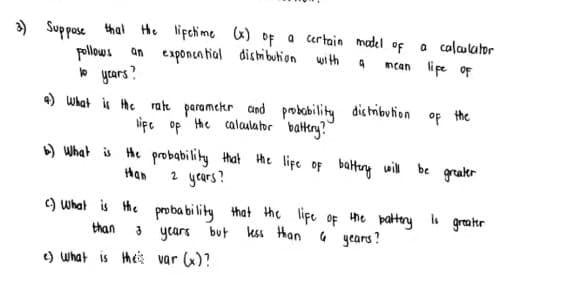 3) Suppose that the lifetime (x) of a certain model of a calculator
follows an exponential distribution with a mean life of
10 years?
a) What is the rate parameter and probability distribution of the
life of the calculator battery?
b) What is the probability that the life of battery will be greater
than 2 years?
c) What is the probability that the life of the battery is greater
than 3 years but less than 6 years?
e) What is the var (x)?